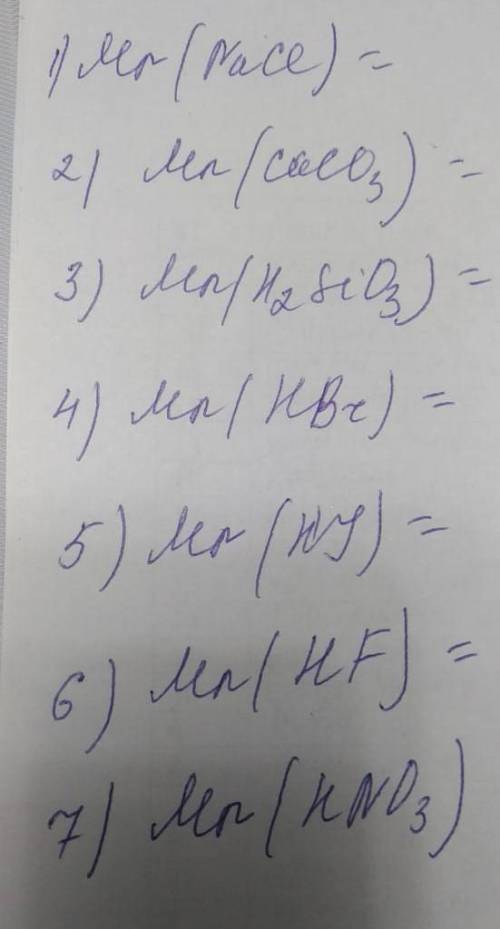 1) Mr(NaCl) =
2) Mr(CaCO3) =
3) Mr(H2SiO3) =
4) Mr(HBr) =
5) Mr(HJ) =
6) Mr(HF) =
7) Mr(HNO3)